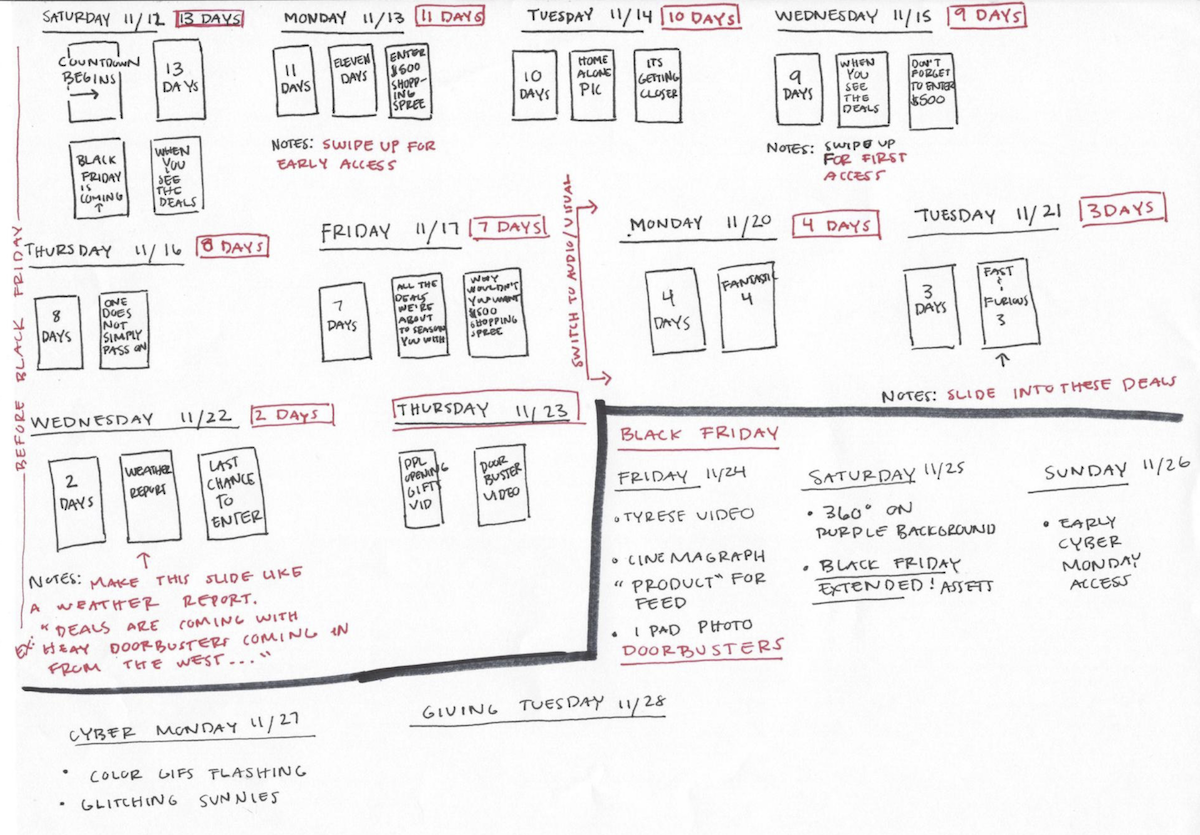 SATURDAY 11/12 13 DAYS
COUNTDOWN
BEGINS
13
DAYS
BLACK
FRIDAY
IS
COMING
WHEN
YOU
SEE
THE
DEALS
MONDAY 11/13 11 DAYS
11
DAYS
ELEVEN
DAYS
ENTER
$500
SHOPP-
ING
SPREE
NOTES: SWIPE UP FOR
EARLY ACCESS
TUESDAY 11/14 10 DAYS
10
DAYS
HOME
ALONE
PIC
ITS
GETTING
CLOSER
WEDNESDAY 11/15 9 DAYS
9
DAYS
WHEN
YOU
SEE
THE
DEALS
DON'T
FORGET
TO ENTER
$500
NOTES: SWIPE UP
FOR FIRST
ACCESS
BEFORE BLACK FRIDAY
THURSDAY 11/16 8 DAYS
8
DAYS
ONE
DOES
NOT
SIMPLY
PASS ON
FRIDAY 11/17 7 DAYS
7
DAYS
ALL THE
DEALS
WE'RE
ABOUT
TO SEASON
YOU WITH
WHY
WOULDN'T
YOU WANT
$500
SHOPPING
SPREE
SWITCH TO AUDIO/VISUAL
MONDAY 11/20 4 DAYS
4
DAYS
FANTASTIC
4
TUESDAY 11/21 3 DAYS
3
DAYS
FAST
&
FURIOUS
3
NOTES: SLIDE INTO THESE DEALS
WEDNESDAY 11/22 2 DAYS
2
DAYS
WEATHER
REPORT
LAST
CHANCE
TO
ENTER
NOTES: MAKE THIS SLIDE LIKE
A WEATHER REPORT.
EX: "DEALS ARE COMING WITH
HEAY DOORBUSTERS COMING IN
FROM THE WEST..."
THURSDAY 11/23
PPL
OPENING
GIFTS
VID
DOOR
BUSTER
VIDEO
BLACK FRIDAY
FRIDAY 11/24
• TYRESE VIDEO
• CINEMAGRAPH
"PRODUCT" FOR
FEED
• IPAD PHOTO
DOORBUSTERS
SATURDAY 11/25
• 360° ON
PURPLE BACKGROUND
• BLACK FRIDAY
EXTENDED! ASSETS
SUNDAY 11/26
• EARLY
CYBER
MONDAY
ACCESS
CYBER MONDAY 11/27
• COLOR GIFS FLASHING
• GLITCHING SUNNIES
GIVING TUESDAY 11/28